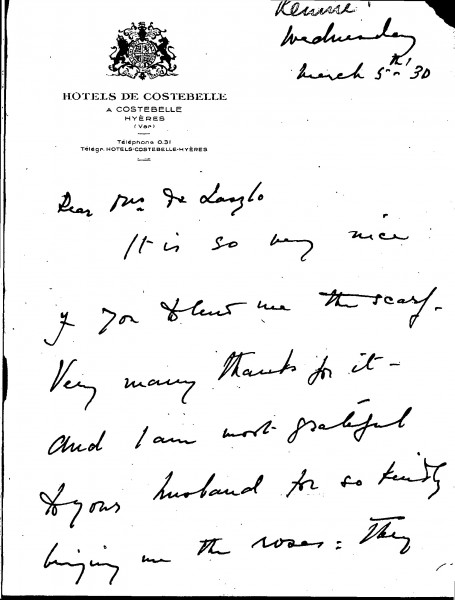 Wednesday
March 5th 30
HOTELS DE COSTEBELLE
A COSTEBELLE
HYÈRES
(Var)
Téléphone 0.31
Télégr. HOTELS-COSTEBELLE-HYÈRES
Dear Mrs de Laszlo
It is so very nice
of you to lend me the scarf.
Very many thanks for it -
and I am most grateful
to your husband for so kindly
bringing me the roses: They